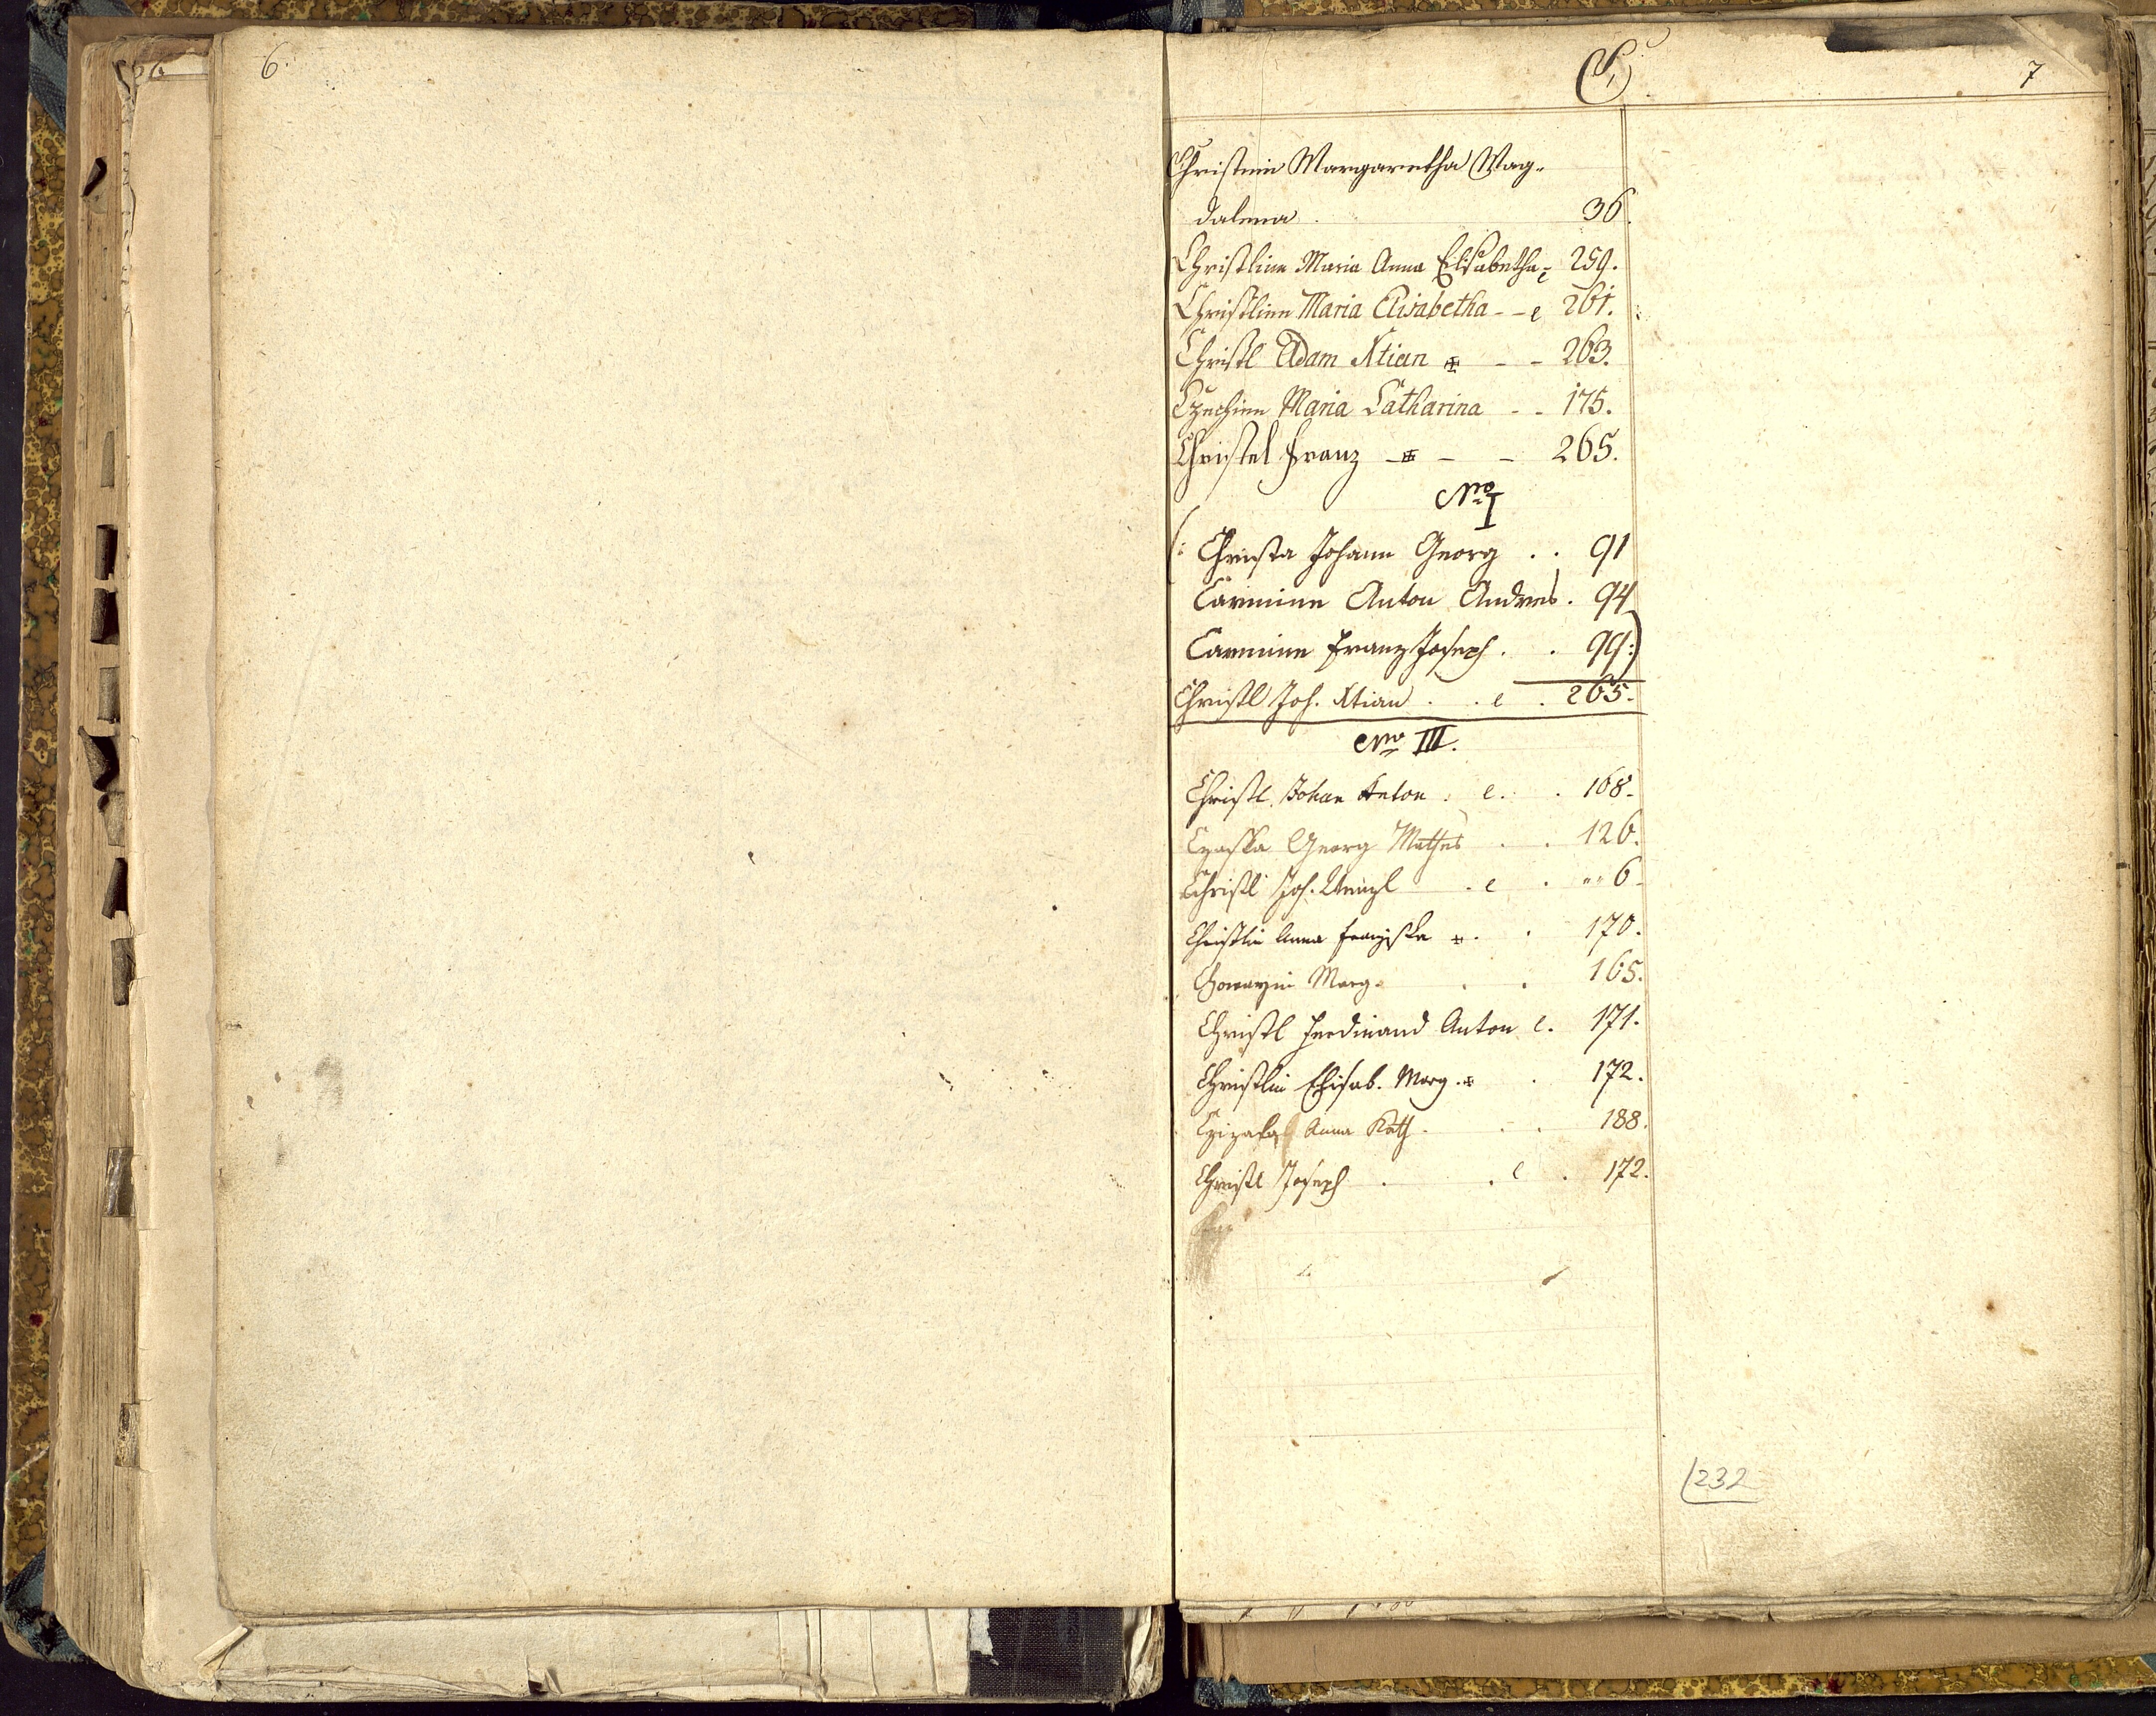 6.
C,
7
Christinin Margaretha Mag-
dalena . 36.
Christlinn Maria Anna Elisabetha e 259.
Christlinn Maria Elisabetha - - e 261.
Christl Adam Xtian - - 263.
Czechinn Maria Catharina - - 175.
Christel Franz - - - 265.
No I
(: Christa Johann Georg . . 91
Carminn Anton Andres . 94
Carminn Franz Joseph . . 99:)
Christl Joh. Xtian . . e . 265.
No III.
Christl Johan Anton . e . . 168.
Georg Mathes . . 126.
Christl Joh. Wenzl . e . " 6
Christlin Anna Franziska . . 170.
Marg. . . 165.
Christl Ferdinand Anton e . 171.
Christlin Elisab. Marg. . 172.
Anna Kath. . . 188.
Christl Joseph . . e . 172.
232